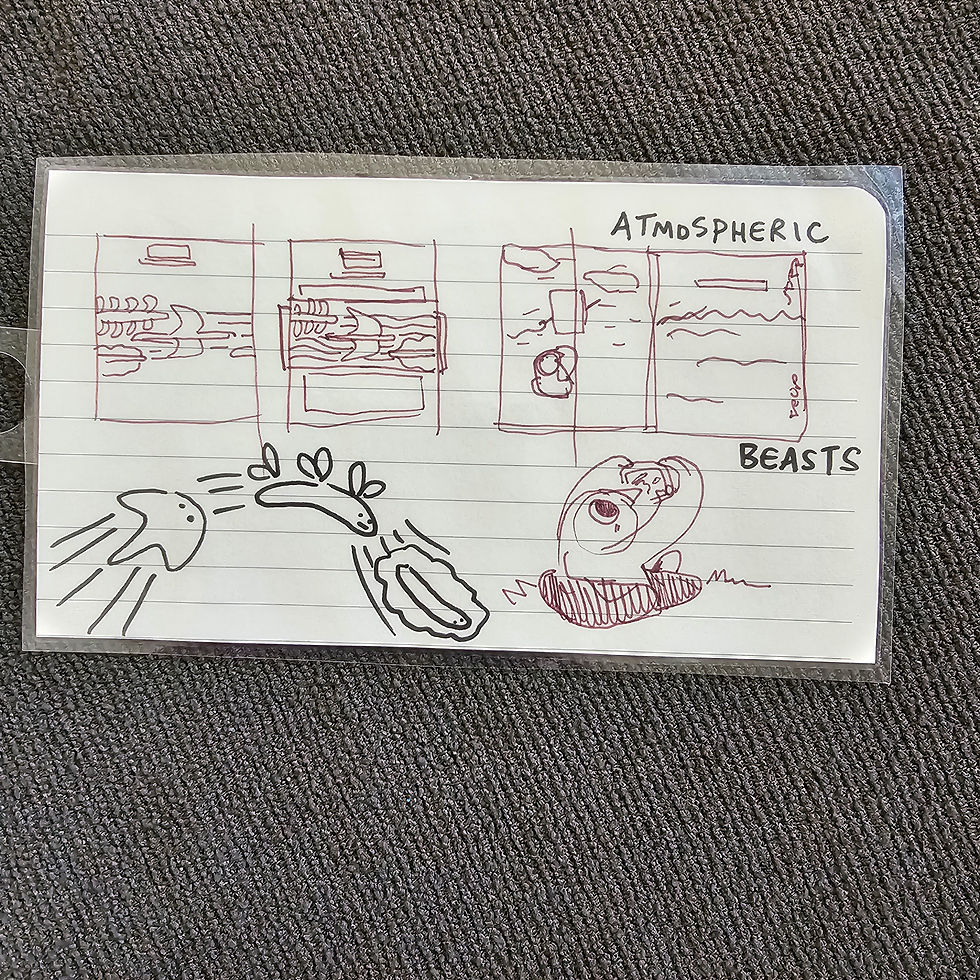 ATMOSPHERIC
BEASTS